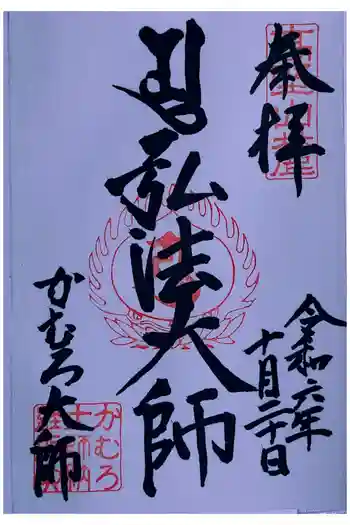 奉拝
令和六年
十月二十日
弘法大師
かむろ大師
かむろ
大師